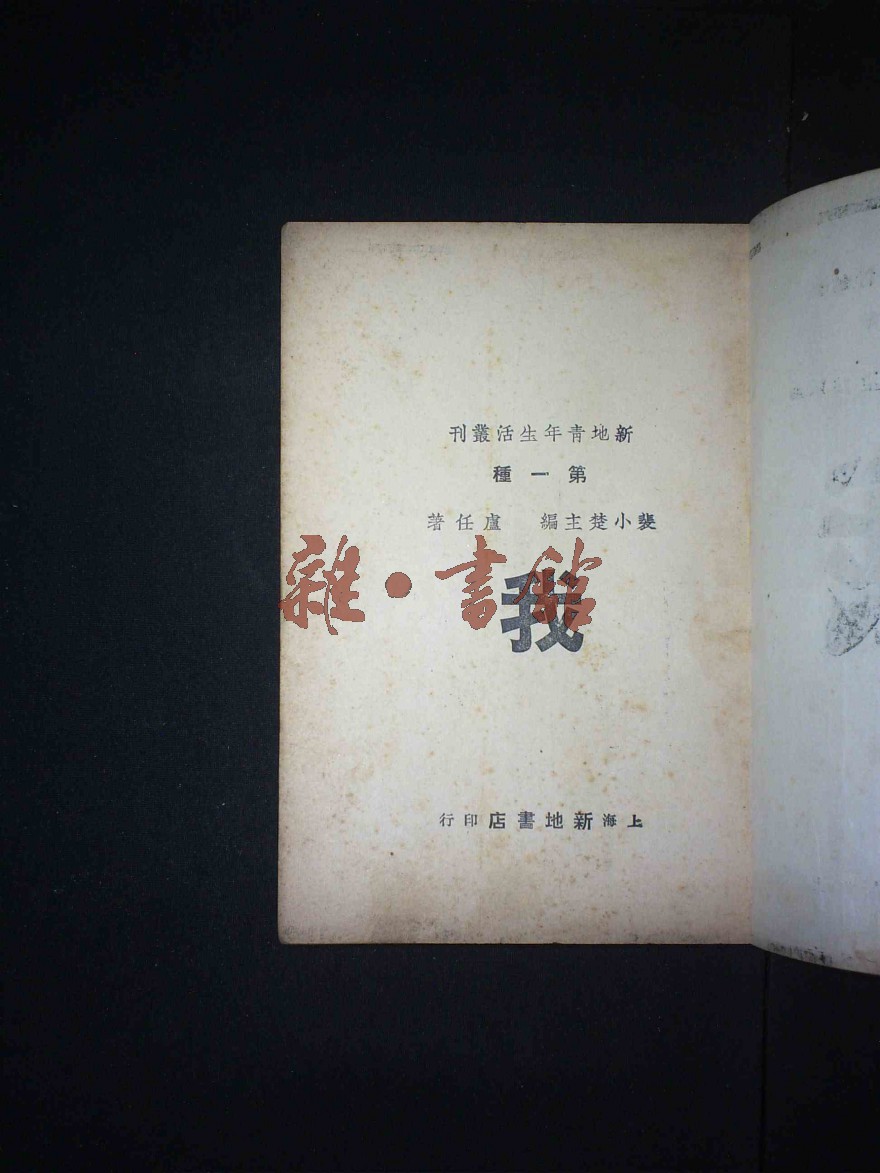 新地青年生活叢刊
第一種
裴小楚主編 盧任著
我
雜·書館
上海新地書店印行